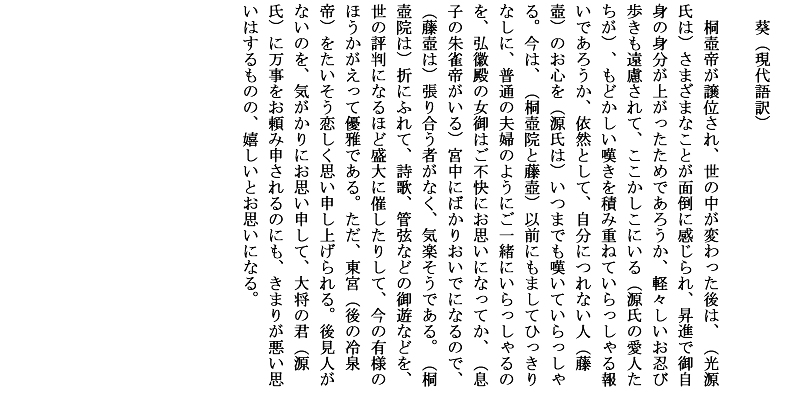 葵（現代語訳）
桐壺帝が譲位され、世の中が変わった後は、（光源
氏は）さまざまなことが面倒に感じられ、昇進で御自
身の身分が上がったためであろうか、軽々しいお忍び
歩きも遠慮されて、ここかしこにいる（源氏の愛人た
ちが）、もどかしい嘆きを積み重ねていらっしゃる報
いであろうか、依然として、自分につれない人（藤
壺）のお心を（源氏は）いつまでも嘆いていらっしゃ
る。今は、（桐壺院と藤壺）以前にもましてひっきり
なしに、普通の夫婦のようにご一緒にいらっしゃるの
を、弘徽殿の女御はご不快にお思いになってか、（息
子の朱雀帝がいる）宮中にばかりおいでになるので、
（藤壺は）張り合う者がなく、気楽そうである。（桐
壺院は）折にふれて、詩歌、管弦などの御遊などを、
世の評判になるほど盛大に催したりして、今の有様の
ほうかがえって優雅である。ただ、東宮（後の冷泉
帝）をたいそう恋しく思い申し上げられる。後見人が
ないのを、気がかりにお思い申して、大将の君（源
氏）に万事をお頼み申されるのにも、きまりが悪い思
いはするものの、嬉しいとお思いになる。